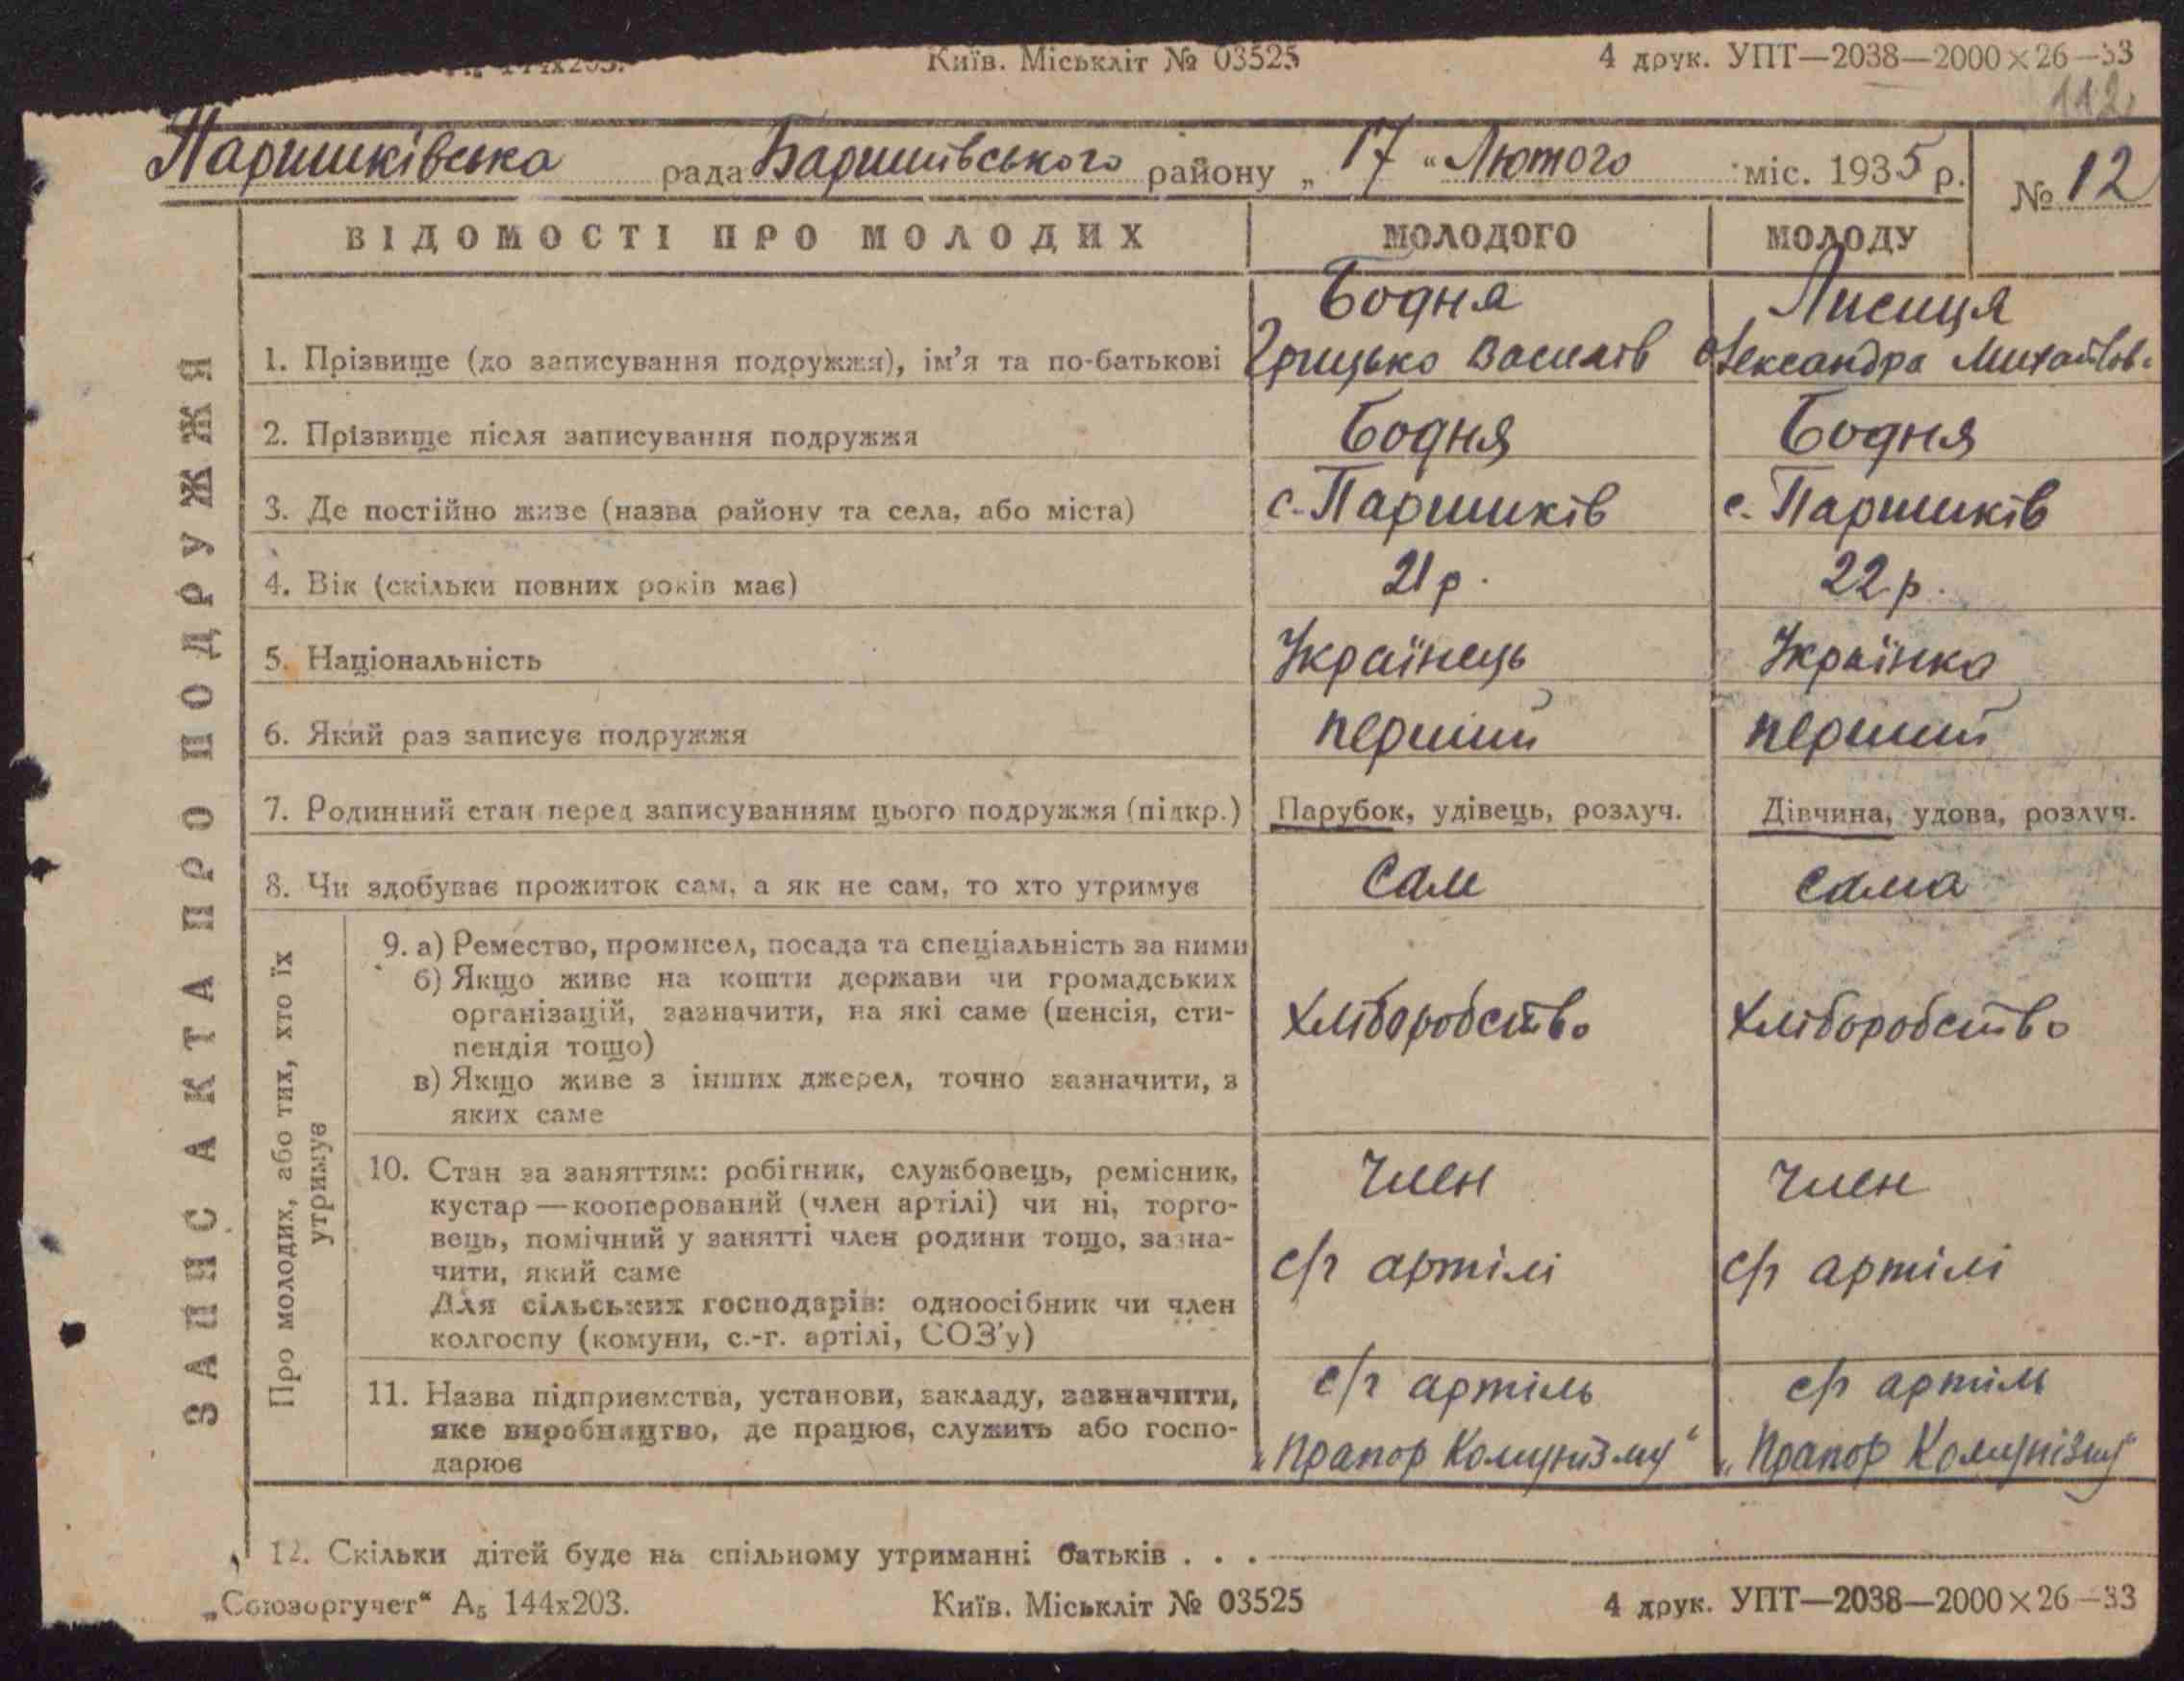 144х203. Київ. Міськліт № 03525 4 друк. УПТ—2038—2000×26—33
112
Паришківська рада Баришівського району „ 17 “ Лютого міс. 1935 р. № 12
ВІДОМОСТІ ПРО МОЛОДИХ МОЛОДОГО МОЛОДУ
ЗАПИС АКТА ПРО ПОДРУЖЖЯ
Бодня Лисиця
1. Прізвище (до записування подружжя), ім’я та по-батькові Грицько Василів Олександра Михайлов.
2. Прізвище після записування подружжя Бодня Бодня
3. Де постійно живе (назва району та села, або міста) с. Паришків с. Паришків
4. Вік (скільки повних років має) 21 р. 22 р.
5. Національність Українець Українка
6. Який раз записує подружжя перший перший
7. Родинний стан перед записуванням цього подружжя (підкр.) Парубок, удівець, розлуч. Дівчина, удова, розлуч.
8. Чи здобуває прожиток сам, а як не сам, то хто утримує сам сама
Про молодих, або тих, хто їх
утримує
9. а) Ремество, промисел, посада та спеціальність за ними
б) Якщо живе на кошти держави чи громадських
організацій, зазначити, на які саме (пенсія, сти-
пендія тощо)
в) Якщо живе з інших джерел, точно зазначити, з
яких саме
хліборобство хліборобство
10. Стан за заняттям: робітник, службовець, ремісник,
кустар — кооперований (член артілі) чи ні, торго-
вець, помічний у занятті член родини тощо, зазна-
чити, який саме
Для сільських господарів: одноосібник чи член
колгоспу (комуни, с.-г. артілі, СОЗ’у)
член член
с/г артілі с/г артілі
11. Назва підприємства, установи, закладу, зазначити,
яке виробництво, де працює, служить або госпо-
дарює
с/г артіль с/г артіль
„Прапор Комунізму“ „Прапор Комунізму“
12. Скільки дітей буде на спільному утриманні батьків . . .
„Союзоргучет“ А5 144х203. Київ. Міськліт № 03525 4 друк. УПТ—2038—2000×26—33